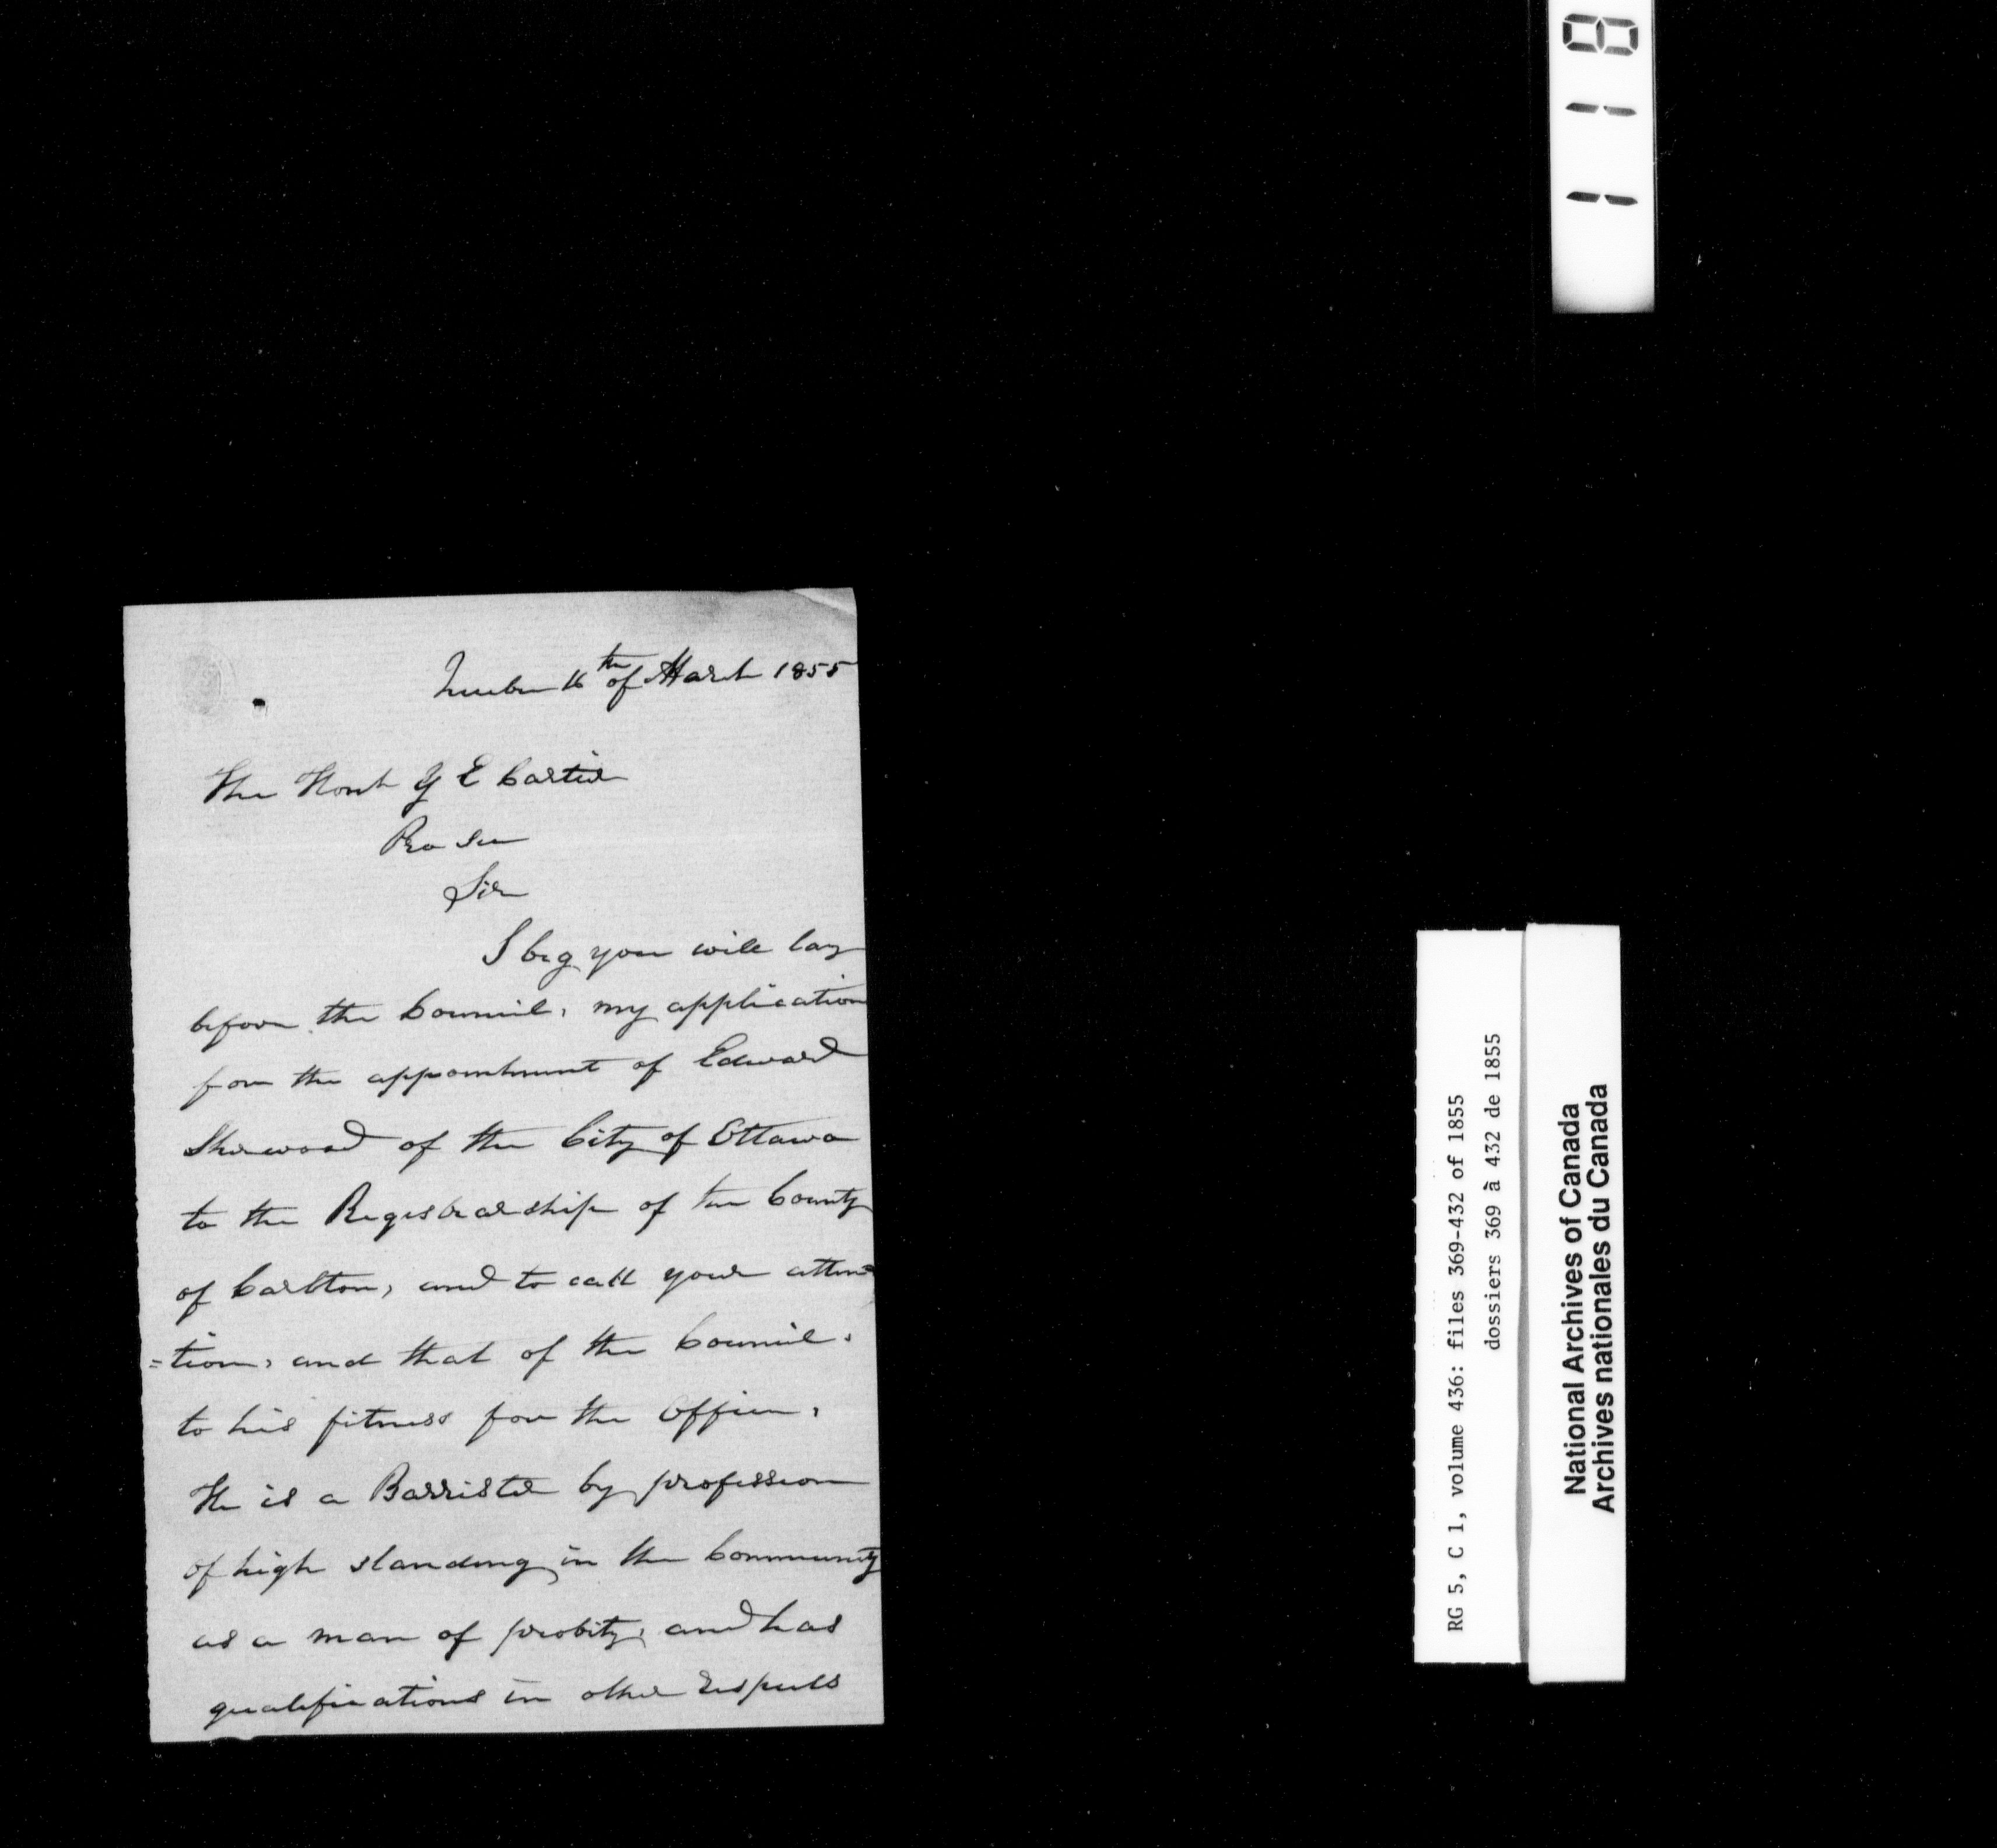 Quebec 16th of March 1855
The Honb G E Cartier
Pro Sec
Sir
I beg you will lay
before the Council, my application
for the appointment of Edward
Sherwood of the City of Ottawa
to the Registrarship of the County
of Carlton, and to call your atten
=tion, and that of the Council,
to his fitness for the Office,
He is a Barrister by profession
of high standing in the Community
as a man of probity, and has
qualifications in other respects
811
RG 5, C 1, volume 436: files 369-432 of 1855
dossiers 369 à 432 de 1855
National Archives of Canada
Archives nationales du Canada